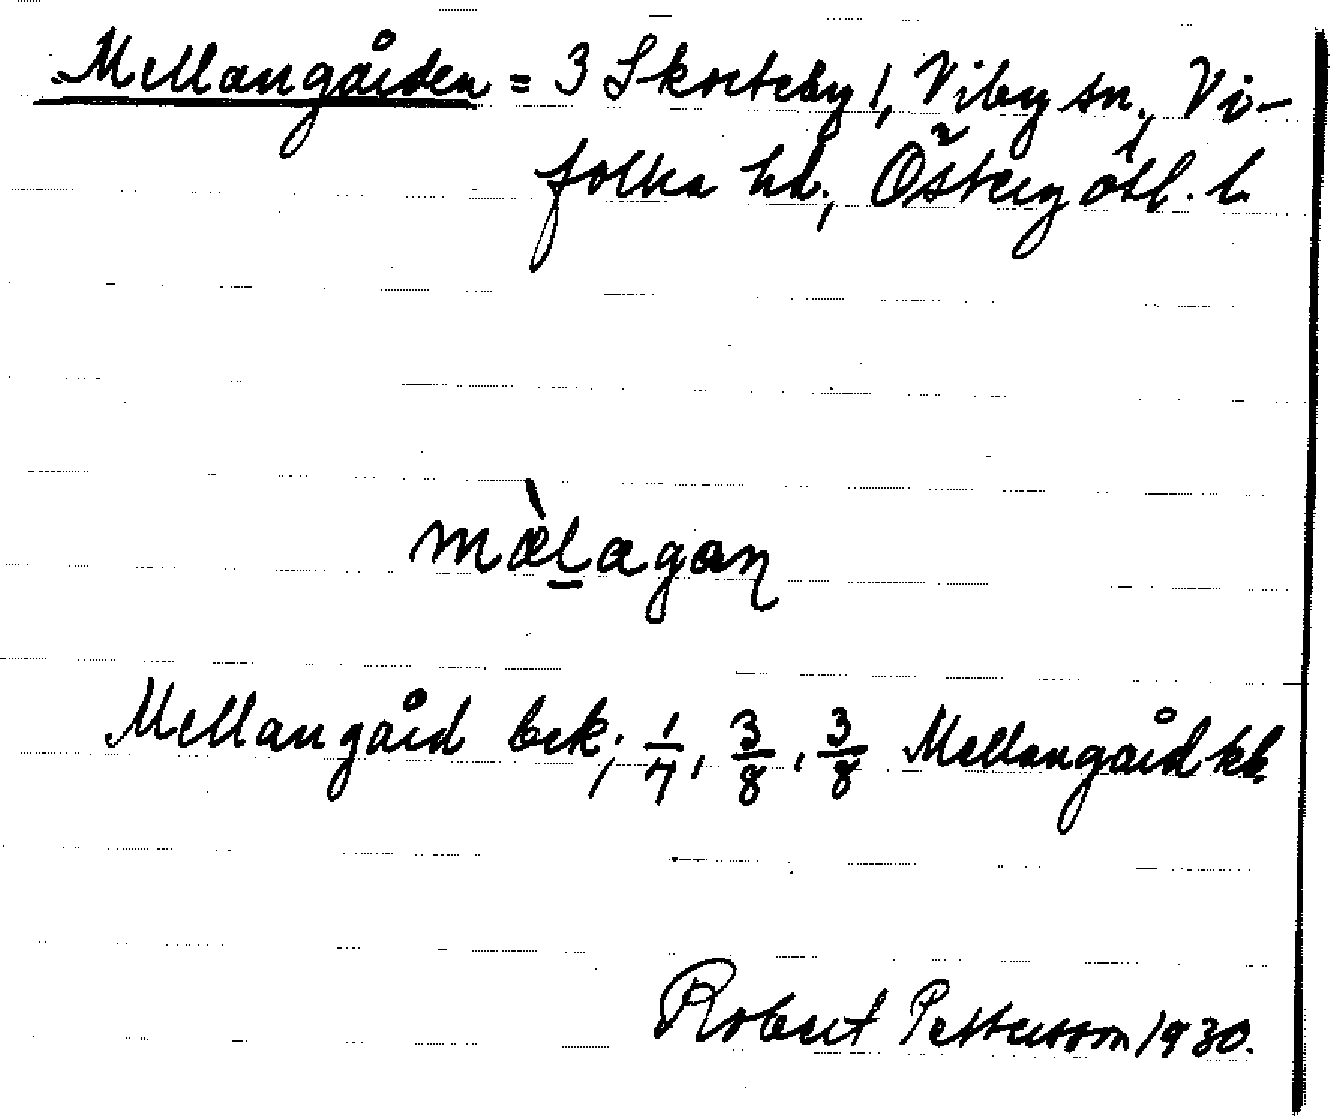 Mellangården = 3 Skorteby 1, Viby sn., Vi-
folka hd., Östergötl. l.
mæ̀l̠agaɳ
Mellangård bek; 1/7, 3/8, 3/8 Mellangård kk
Robert Pettersson 1930.